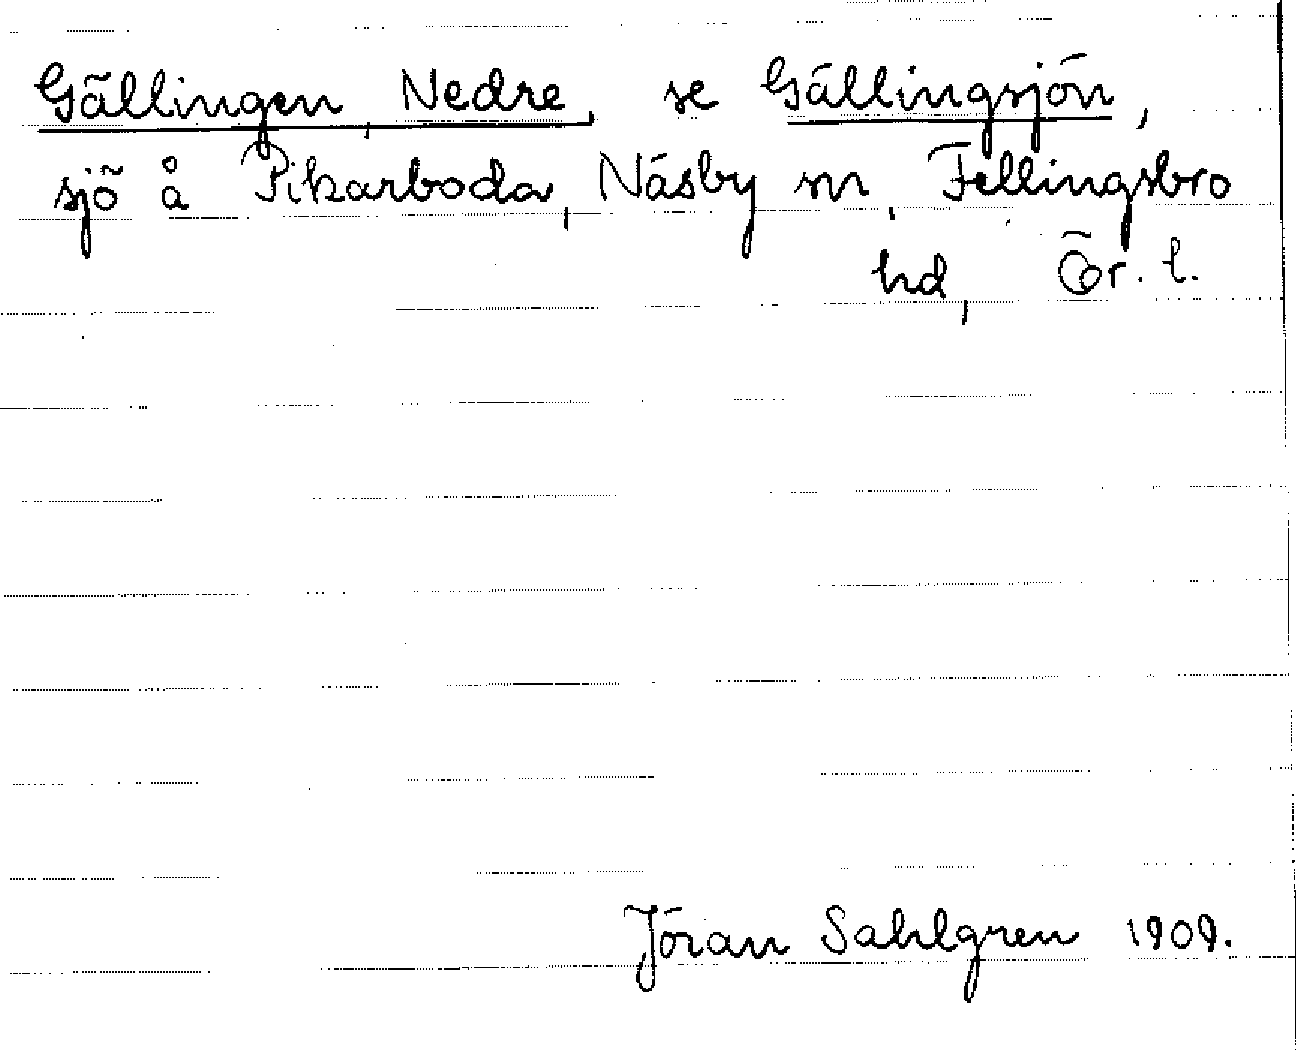 Gällingen, Nedre, se Gällingsjön,
sjö å Pikarboda, Näsby sn, Fellingsbro
hd, Ör. l.
Jöran Sahlgren 1909.